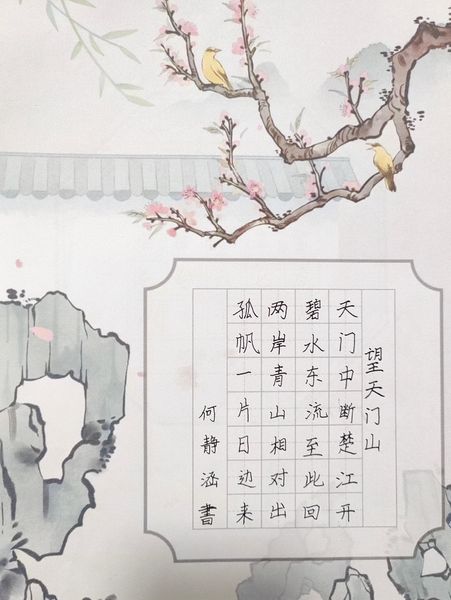 望天门山
天门中断楚江开
碧水东流至此回
两岸青山相对出
孤帆一片日边来
何静涵書